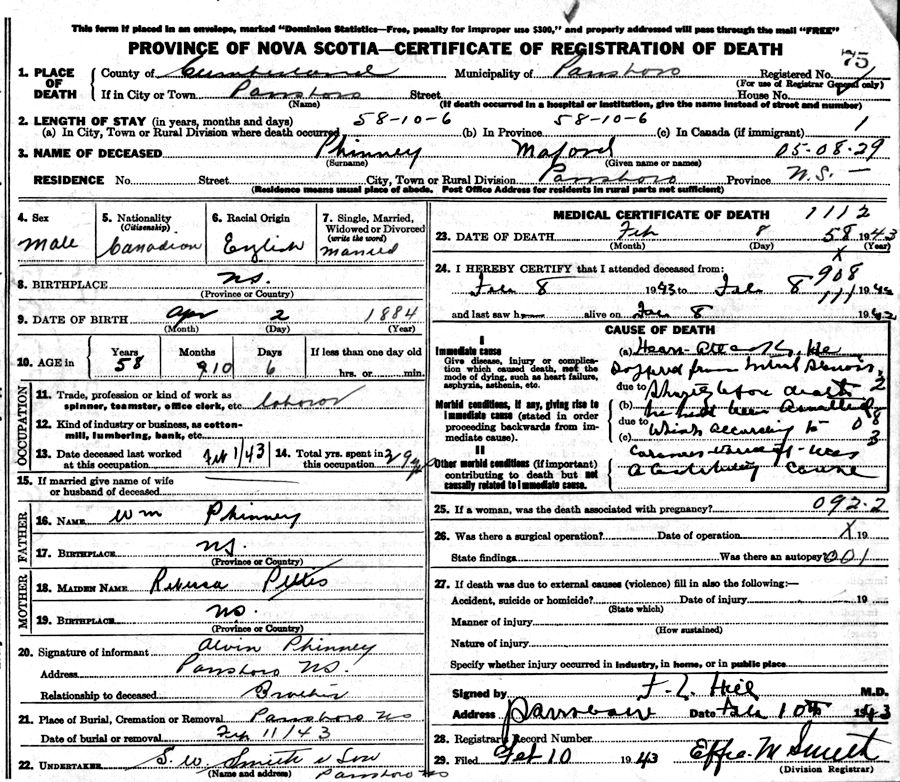 This form if placed in an envelope, marked "Dominion Statistics—Free, penalty for improper use $300," and properly addressed will pass through the mail "FREE"
PROVINCE OF NOVA SCOTIA—CERTIFICATE OF REGISTRATION OF DEATH
75
1. PLACE OF DEATH
County of Cumberland Municipality of Parrsboro Registered No.
(For use of Registrar General only)
If in City or Town Parrsboro Street House No.
(Name) (If death occurred in a hospital or institution, give the name instead of street and number)
2. LENGTH OF STAY (in years, months and days)
(a) In City, Town or Rural Division where death occurred 58-10-6 (b) In Province 58-10-6 (c) In Canada (if immigrant) 1
3. NAME OF DECEASED Phinney Maford 05-08-29
(Surname) (Given name or names)
RESIDENCE No. Street City, Town or Rural Division Parrsboro Province N.S. —
(Residence means usual place of abode. Post Office Address for residents in rural parts not sufficient)
4. Sex
Male
5. Nationality
(Citizenship)
Canadian
6. Racial Origin
English
7. Single, Married, Widowed or Divorced
(write the word)
Married
8. BIRTHPLACE NS.
(Province or Country)
9. DATE OF BIRTH Apr 2 1884
(Month) (Day) (Year)
10. AGE in
Years Months Days If less than one day old
58 10 6 hrs. or min.
OCCUPATION
11. Trade, profession or kind of work as spinner, teamster, office clerk, etc. Laborer
12. Kind of industry or business, as cotton-mill, lumbering, bank, etc.
13. Date deceased last worked at this occupation Feb 1/43
14. Total yrs. spent in this occupation 29 yrs
15. If married give name of wife or husband of deceased
FATHER
16. NAME Wm Phinney
17. BIRTHPLACE NS.
(Province or Country)
MOTHER
18. MAIDEN NAME Rebecca
19. BIRTHPLACE NS.
(Province or Country)
20. Signature of informant Alvin Phinney
Address Parrsboro NS.
Relationship to deceased Brother
21. Place of Burial, Cremation or Removal Parrsboro NS
Date of burial or removal Feb 11/43
22. UNDERTAKER S. W. Smith & Son
(Name and address) Parrsboro NS
MEDICAL CERTIFICATE OF DEATH 1112
23. DATE OF DEATH Feb 8 58 1943
(Month) (Day) (Year)
X
24. I HEREBY CERTIFY that I attended deceased from:
908
Feb 8 1943 to Feb 8 19
111
and last saw h alive on Feb 8 19
CAUSE OF DEATH
I
Immediate cause
Give disease, injury or complication which caused death, not the mode of dying, such as heart failure, asphyxia, asthenia, etc.
Morbid conditions, if any, giving rise to immediate cause (stated in order proceeding backwards from immediate cause).
II
Other morbid conditions (if important) contributing to death but not causally related to immediate cause.
(a) Heart attack, He
suffered from mitral stenosis
due to
Shortly before death 2
(b) he had been assaulted 8
due to
which according to 0
(c) 3
Coroner's inquest was
a contributing cause
25. If a woman, was the death associated with pregnancy? 092-2
26. Was there a surgical operation? Date of operation X 19
State findings Was there an autopsy? 001
27. If death was due to external causes (violence) fill in also the following:—
Accident, suicide or homicide? Date of injury 19
(State which)
Manner of injury
(How sustained)
Nature of injury
Specify whether injury occurred in industry, in home, or in public place
Signed by F. L. Hill M.D.
Address Parrsboro Date Feb 10th 1943
28. Registrar's Record Number
29. Filed Feb 10 1943 Effie M Smith
(Division Registrar)